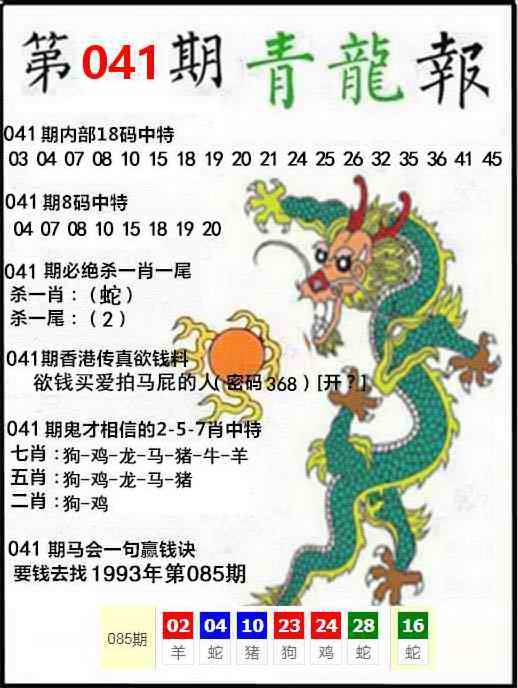 第041期青龍報
041期内部18码中特
03 04 07 08 10 15 18 19 20 21 24 25 26 32 35 36 41 45
041期8码中特
04 07 08 10 15 18 19 20
041 期必绝杀一肖一尾
杀一肖：（蛇）
杀一尾：（2）
041期香港传真欲钱料
欲钱买爱拍马屁的人(密码368）[开？]
041期鬼才相信的2-5-7肖中特
七肖：狗-鸡-龙-马-猪-牛-羊
五肖：狗-鸡-龙-马-猪
二肖：狗-鸡
041 期马会一句赢钱诀
要钱去找1993年第085期
085期 02 04 10 23 24 28 16
羊 蛇 猪 狗 鸡 蛇 蛇